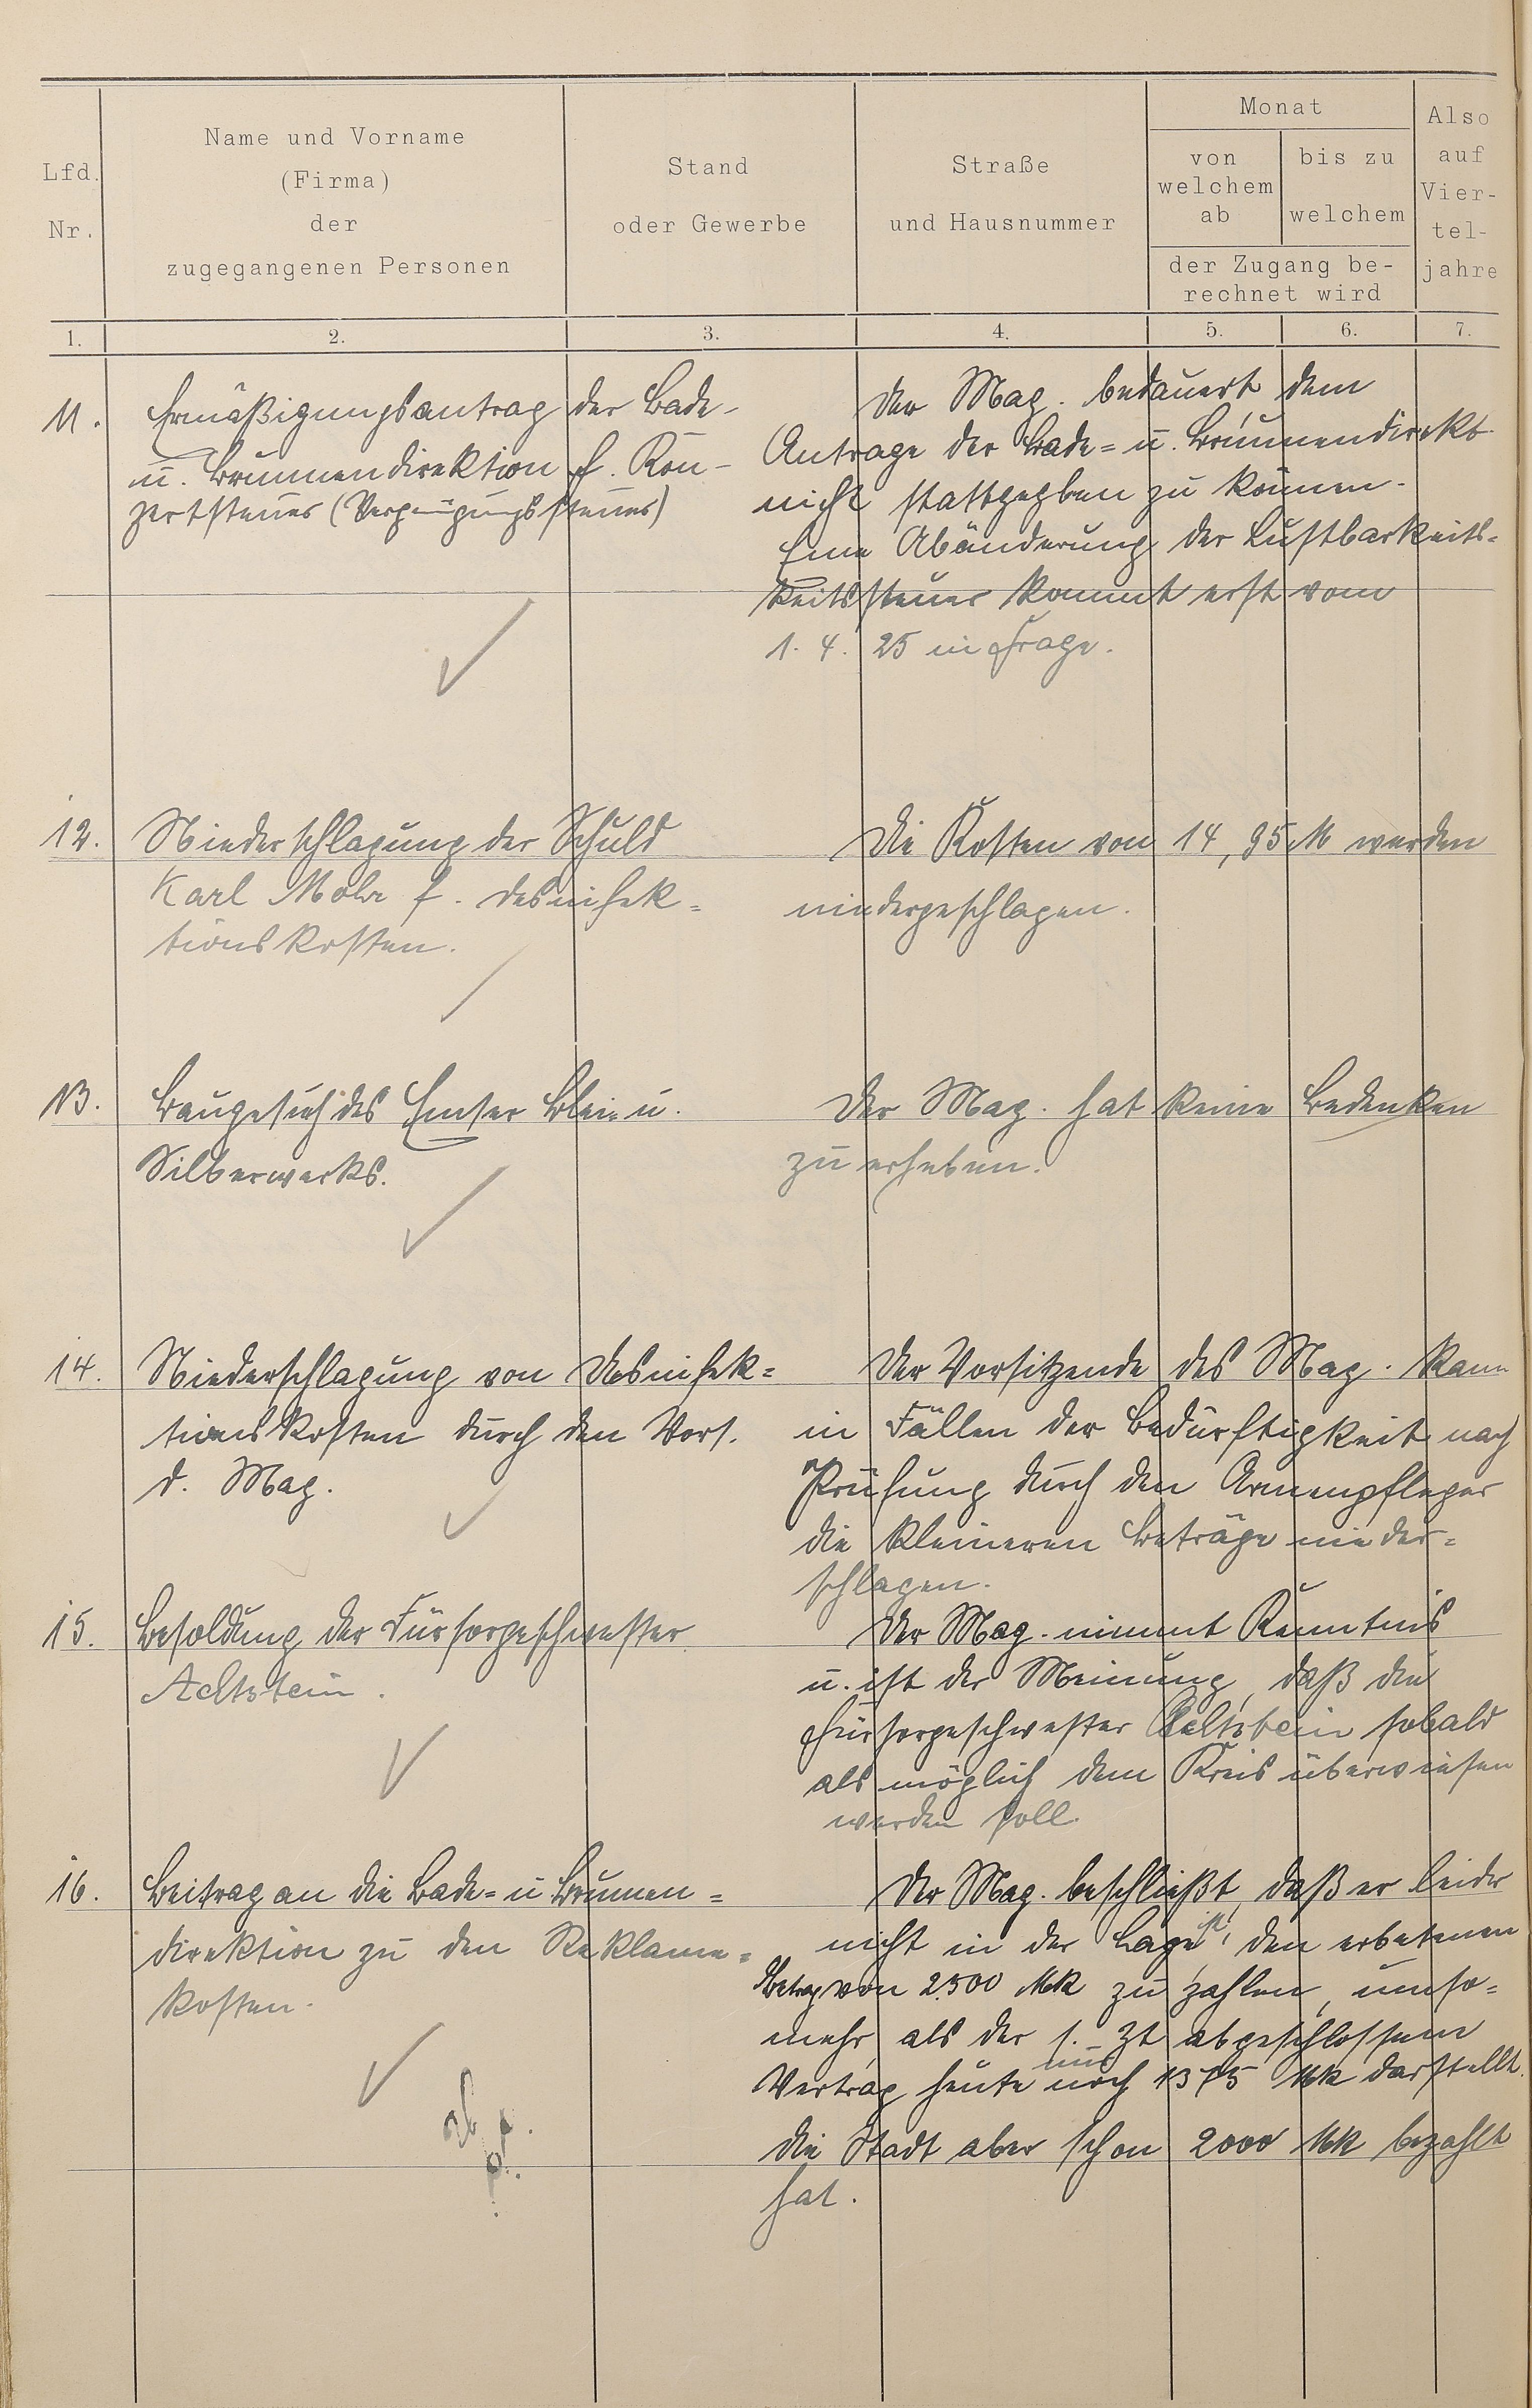 Lfd. Nr.
Name und Vorname
(Firma)
der
zugegangenen Personen
Stand
oder Gewerbe
Straße
und Hausnummer
Monat
von
welchem
ab
bis zu
welchem
der Zugang be-
rechnet wird
Also
auf
Vier-
tel-
jahre
1. 2. 3. 4. 5. 6. 7.
11.
Ermäßigungsantrag der Bade-
u. Brunnendirektion f. Kon-
zertsteuer (Vergnügungssteuer)
Der Mag. bedauert dem
Antrage der Bade= u. Brunnendirekt.
nicht stattgegben zu können.
Eine Abänderung der Lustbarkeits=
keitssteuer kommt erst vom
1. 4. 25 in Frage.
12.
Niederschlagung der Schuld
Karl Mohr f. Desinfek=
tionskosten.
Die Kosten von 14,95 M werden
niedergeschlagen.
13.
Baugesuch des Emser Blei= u.
Silberwerks.
Der Mag. hat keine Bedenken
zu erheben.
14.
Niederschlagung von Desinfek=
tionskosten durch den Vors.
d. Mag.
Der Vorsitzende des Mag. kann
in Fällen der Bedürftigkeit nach
Prüfung durch den Armenpfleger
die kleineren Beträge nieder=
schlagen.
15.
Besoldung der Fürsorgeschwester
Aeltstein.
Der Mag. nimmt Kenntnis
u. ist der Meinung, daß die
Fürsorgeschwester Aeltstein sobald
als möglich dem Kreis überwiesen
werden soll.
16.
Beitrag an die Bade= u Brunnen=
direktion zu den Reklame=
kosten.
Der Mag. beschließt, daß er leider
nicht in der Lage ist, den erbetenen
Betrag von 2500 Mk zu zahlen, umso=
mehr, als der s. Zt abgeschlossene
Vertrag heute nur noch 1375 Mk darstellt.
die Stadt aber schon 2000 Mk bezahlt
hat.